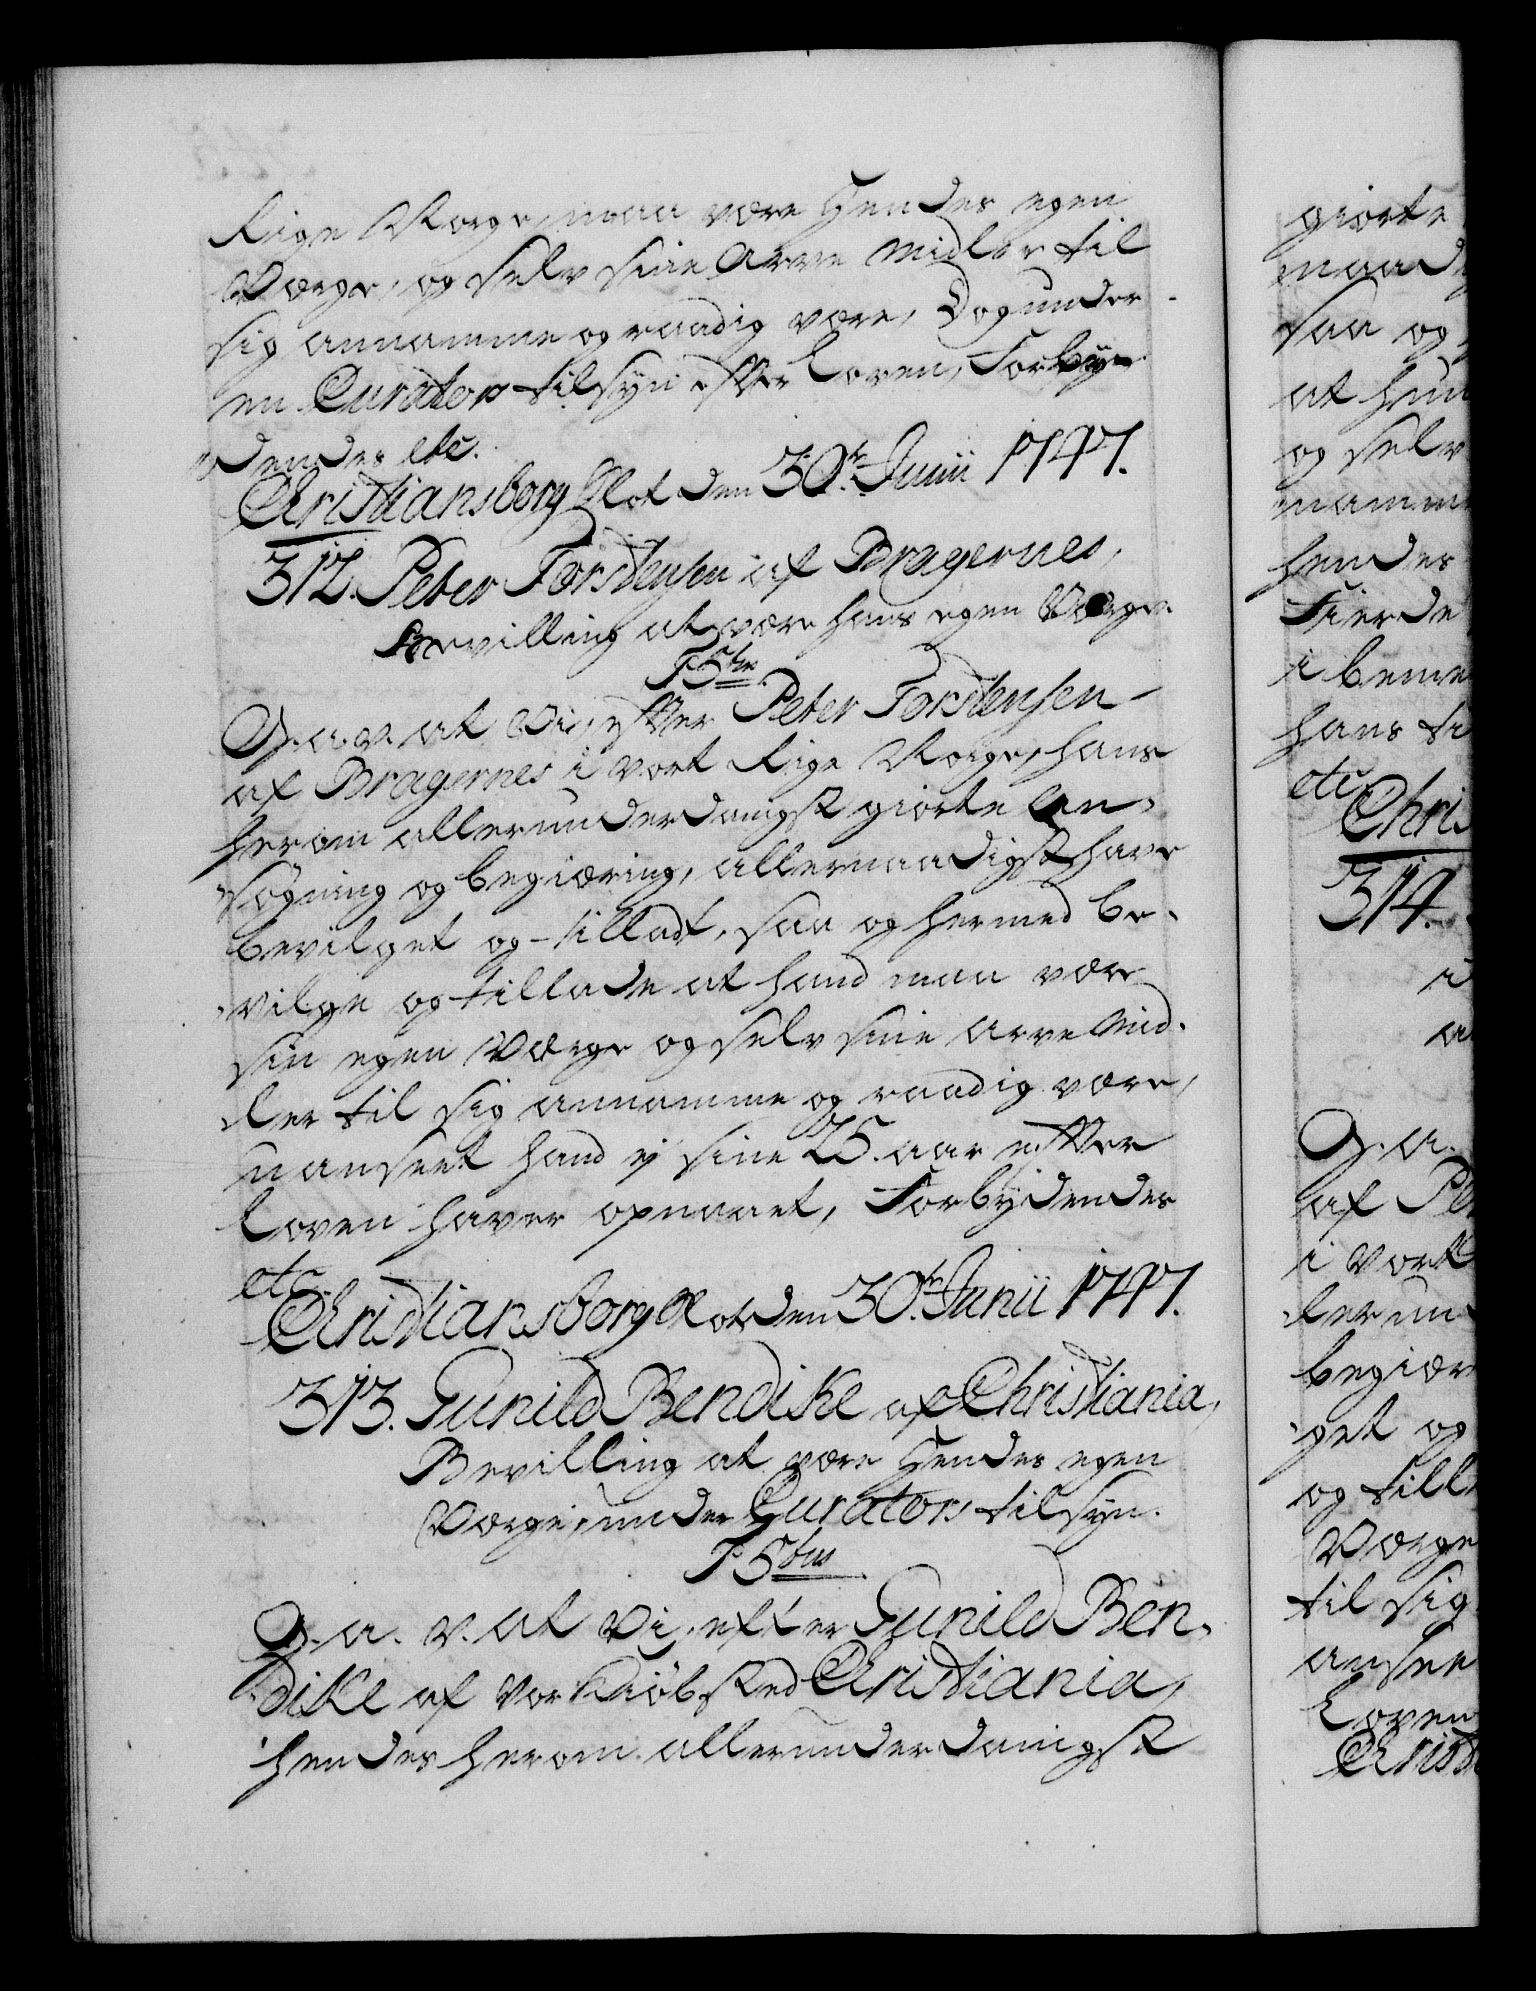 Rige Norge, maa være Hendes egen
Værge, og selv sine Arve Midler til
sig annamme og raadig være, Dog under
en Curators tilsyn efter Loven, Forbÿ-
dendes etc.
Christiansborg Slot den 30te Junii 1747.
312. Peter Torstensen af Bragernes,
Bevilling at være hans egen Værge.
G. a. v. at Vi, efter Peter Torstensen
af Bragernes i vort Rige Norge, hans
herom allerunderdanigst giorte An-
søgning og begiæring, allernaadigst have
bevilget og tilladt, saa og hermed be-
vilge og tillade at hand maa være
sin egen Værge og selv sine arve Mid-
ler til sig annamme og raadig være,
uanseet hand ej sine 25. aar efter
Loven haver opnaaet, Forbÿdendes
etc.
Christiansborg Slot den 30te Junii 1747.
313. Gunild Bendike af Christiania,
Bevilling at være Hendes egen
Værge, under Curators tilsyn.
G. a. v. at Vi, efter Gunild Ben-
dike af Vor Kiøbsted Christiania,
hendes herom allerunderdanigst
giorte
maad
saa og
at hun
og selv
namm
hendes
Fierde
i beme
hans ti
etc.
Chris
314.
G. a.
af Pe
i Vort
lerun
begiær
get og
og till
Værge
til sig
ansee
Loven
Christ